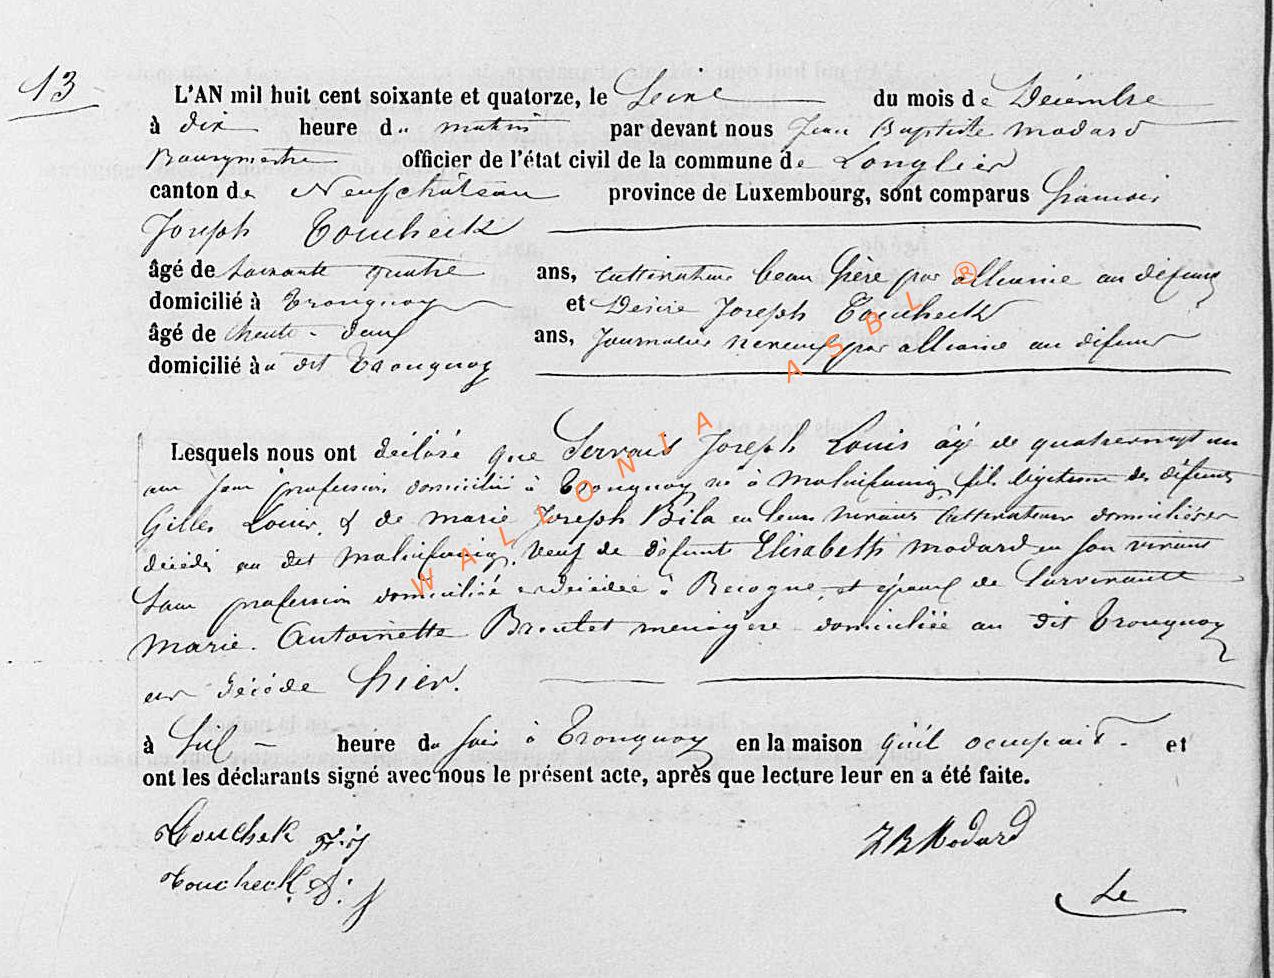 13
L'AN mil huit cent soixante et quatorze, le Seize du mois de Décembre
à dix heure du matin par devant nous Jean Baptiste Modard
Bourgmestre officier de l'état civil de la commune de Longlier
canton de Neufchâteau province de Luxembourg, sont comparus François
Joseph Toucheck
âgé de Soixante quatre ans, cultivateur beau frère par alliance au défunt
domicilié à Tronquoy et Désiré Joseph Toucheck
âgé de trente-deux ans, Journalier neveu par alliance au défunt
domicilié au dit Tronquoy
Lesquels nous ont déclaré que Servais Joseph Louis âgé de quatrevingt un
an sans profession domicilié à Tronquoy né à Molinfaing fils légitime des défunts
Gilles Louis & de marie Joseph Bila en leurs vivants Cultivateurs domiciliés et
décédés au dit Molinfaing, veuf de défunte Elisabeth Modard en son vivant
Sans profession domiciliée et décédée à Recogne, et époux de Survivante
Marie Antoinette Brontet ménagère domiciliée au dit Tronquoy
est décédé hier.
à Six heure du Soir à Tronquoy en la maison qu'il occupait. et
ont les déclarants signé avec nous le présent acte, après que lecture leur en a été faite.
Touchek F: J
J B Modard
Toucheck D: J
Le
WALLONIA ASBL ®